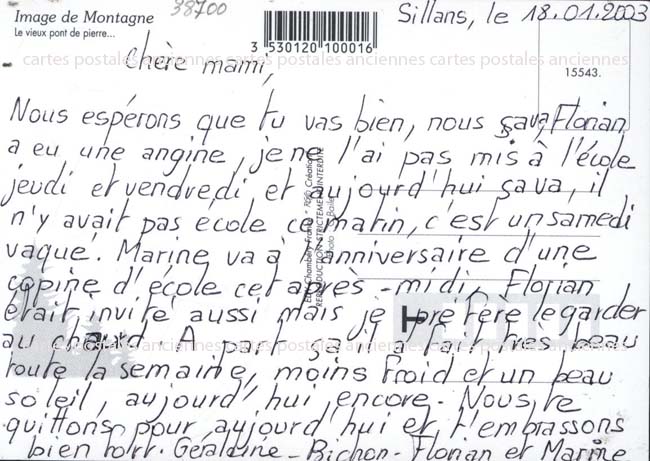 Image de Montagne
Le vieux pont de pierre...
38700
3 530120 100016
Sillans, le 18.01.2003
15543.
cartes postales anciennes cartes postales anciennes cartes postales anciennes
Chère mami,
Nous espérons que tu vas bien, nous sava, Florian
a eu une angine, je ne l'ai pas mis à l'école
jeudi et vendredi et aujourd'hui sava, il
n'y avait pas ecole ce matin, c'est un samedi
vaqué. Marine va à l'anniversaire d'une
copine d'école cet après-midi, Florian
était invité aussi mais je préfère le garder
au chaud. A part ça il a fait très beau
toute la semaine, moins froid et un beau
soleil, aujourd'hui encore. Nous te
quittons pour aujourd'hui et t'embrassons
bien fort. Géraldine - Bichon - Florian et Marine
REPRODUCTION STRICTEMENT INTERDITE
cartes postales anciennes cartes postales anciennes cartes postales anciennes